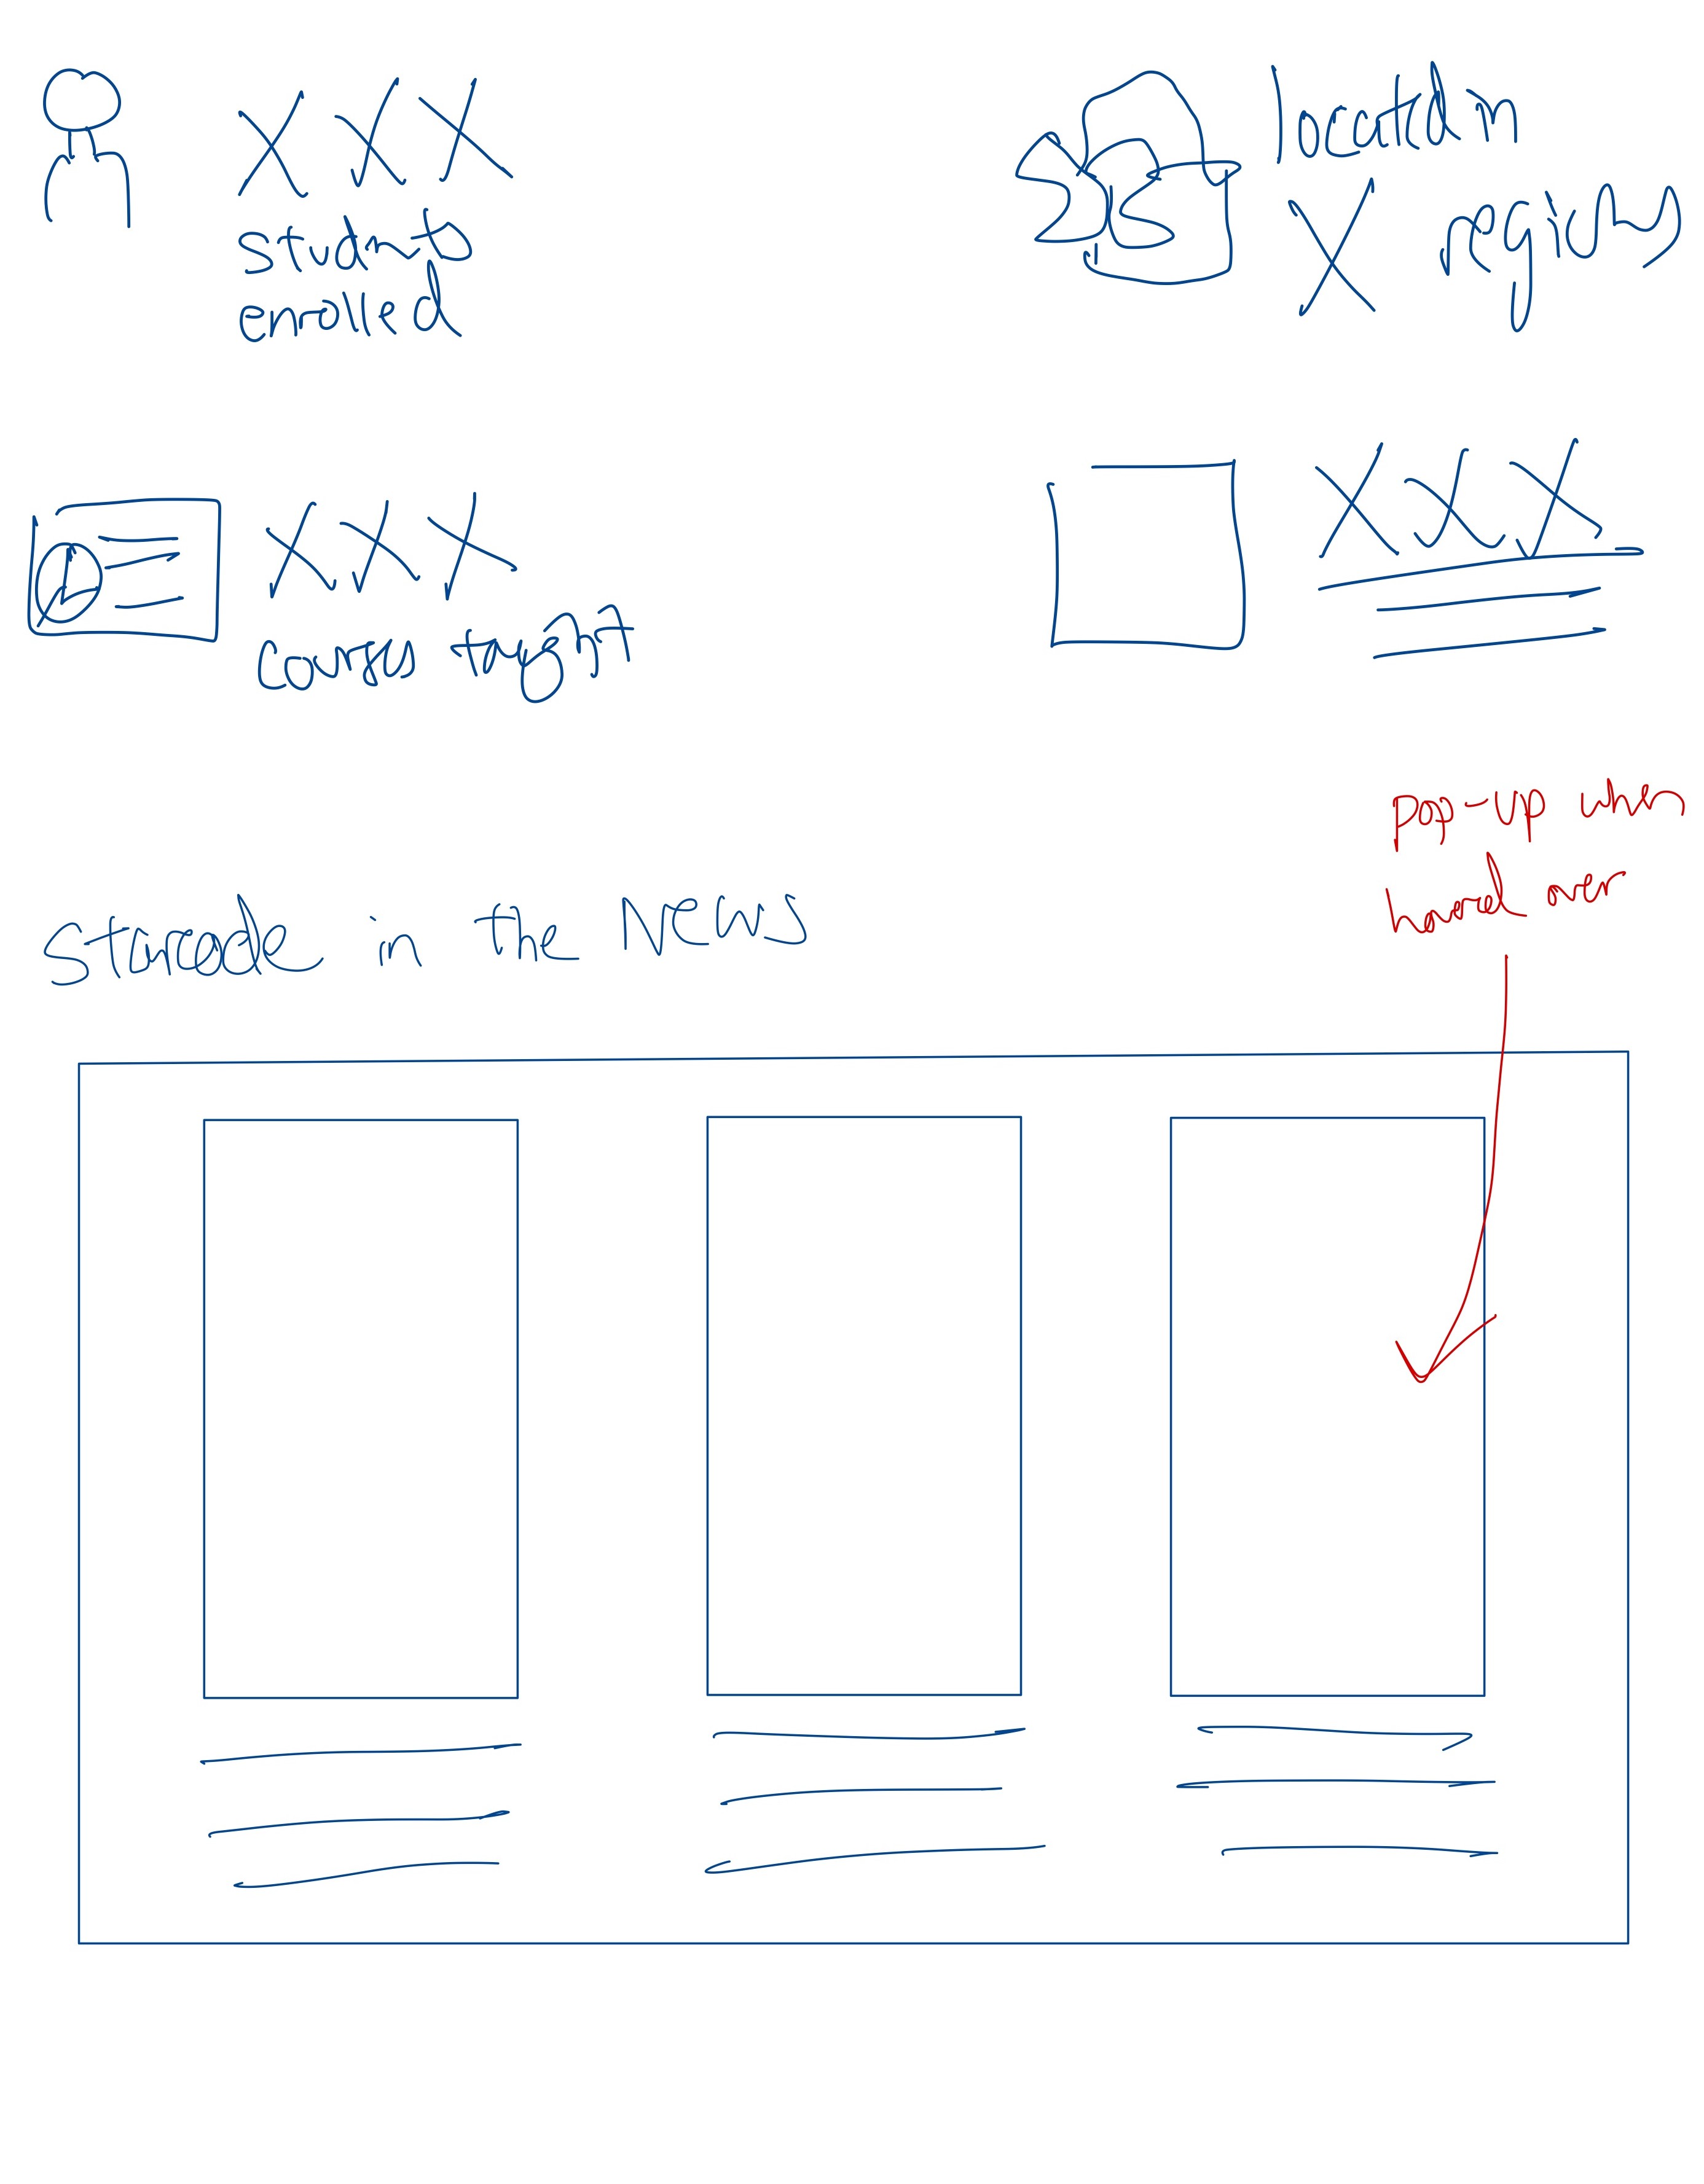 XXX
students
enrolled
location
X regions
XXX
courses taught
XXX
pop-up when
hovered over
in the News